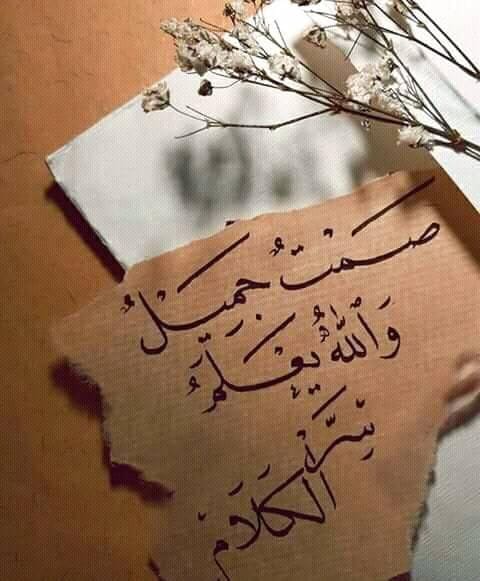 صَمْتٌ جَمِيْلٌ
وَاللّٰهُ يَعْلَمُ
سِرَّ
الكَلَامِ